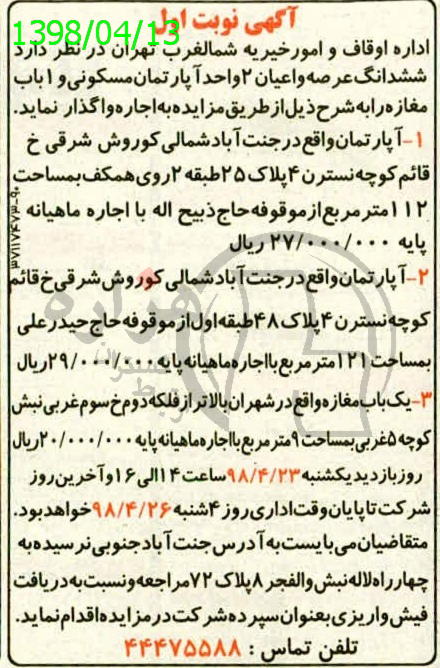 آگهی نوبت اول
1398/04/13
اداره اوقاف و امور خیریه شمالغرب تهران در نظر دارد
ششدانگ عرصه واعیان ۲واحد آپارتمان مسکونی و ۱ باب
مغازه رابه شرح ذیل از طریق مزایده به اجاره واگذار نماید.
۱-آپارتمان واقع در جنت آباد شمالی کوروش شرقی خ
قائم کوچه نسترن ۴ پلاک ۲۵ طبقه ۲ روی همکف بمساحت
۱۱۲ متر مربع از موقوفه حاج ذبیح اله با اجاره ماهیانه
پایه ۲۷/۰۰۰/۰۰۰ ریال
۲-آپارتمان واقع در جنت آباد شمالی کوروش شرقی خ قائم
کوچه نسترن ۴ پلاک ۴۸ طبقه اول از موقوفه حاج حیدر علی
بمساحت ۱۲۱ متر مربع با اجاره ماهیانه پایه ۲۹/۰۰۰/۰۰۰ ریال
۳-یک باب مغازه واقع در شهران بالاتر از فلکه دوم خ سوم غربی نبش
کوچه ۵ غربی بمساحت ۹ متر مربع با اجاره ماهیانه پایه ۲۰/۰۰۰/۰۰۰ ریال
روز بازدید یکشنبه ۹۸/۴/۲۳ ساعت ۱۴ الی ۱۶ و آخرین روز
شرکت تا پایان وقت اداری روز ۴ شنبه ۹۸/۴/۲۶ خواهد بود.
متقاضیان می بایست به آدرس جنت آباد جنوبی نرسیده به
چهارراه لاله نبش والفجر ۸ پلاک ۷۲ مراجعه و نسبت به دریافت
فیش واریزی بعنوان سپرده شرکت در مزایده اقدام نماید.
تلفن تماس : ۴۴۴۷۵۵۸۸
هزاره